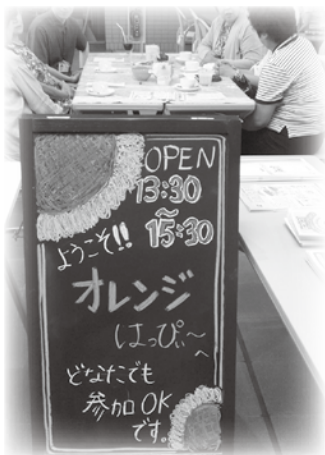 OPEN
13:30
～
15:30
ようこそ!!
オレンジ
はっぴぃ～
へ
どなたでも
参加OK
です。